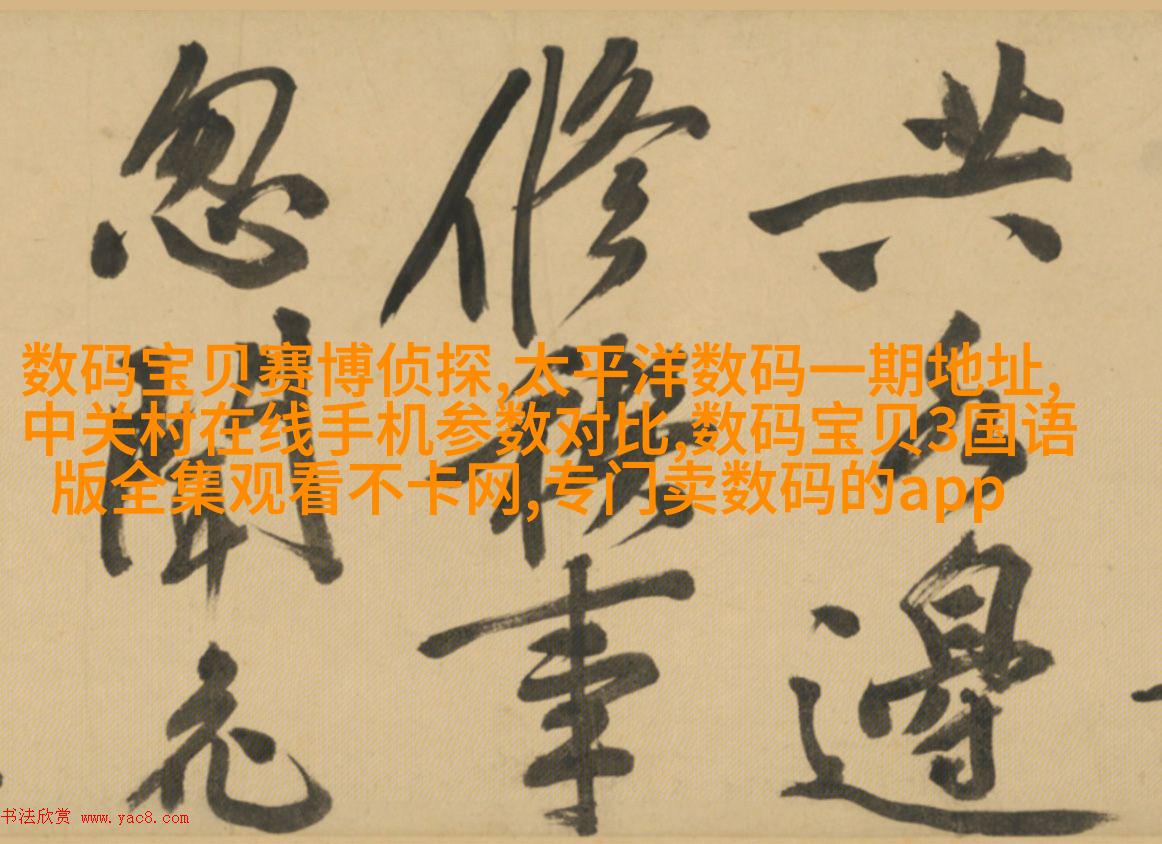 共
邊
修
事
忽
聞
数码宝贝赛博侦探,太平洋数码一期地址,
中关村在线手机参数对比,数码宝贝3国语
版全集观看不卡网,专门卖数码的app
书法欣赏 www.yac8.com